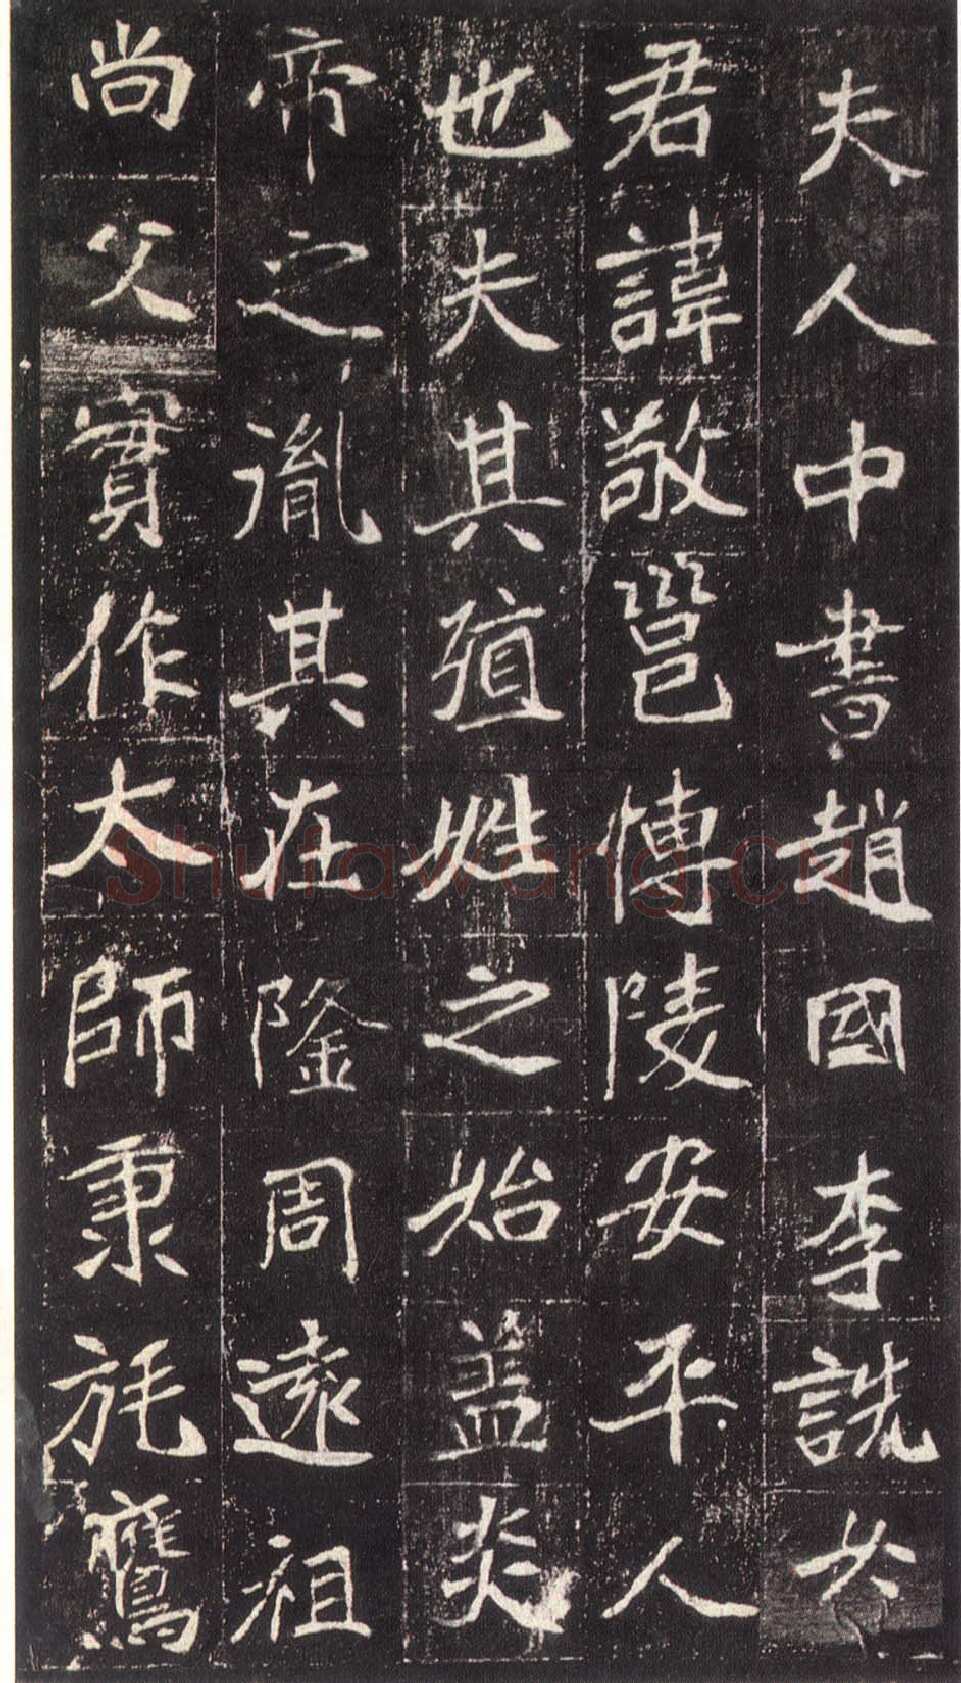 夫人中書趙國李詵女
君諱敬邕博陵安平人
也夫其殖姓之始盖炎
帝之胤其在隆周遠祖
尚父實作太師秉旄鷹
Shufawang.cn